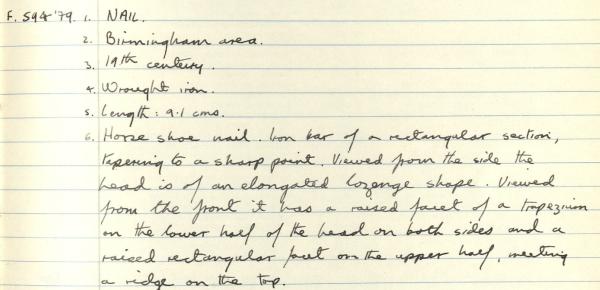 F. 594'79. 1. NAIL.
2. Birmingham area.
3. 19th century.
4. Wrought iron.
5. Length: 9.1 cms.
6. Horse shoe nail. Iron bar of a rectangular section,
tapering to a sharp point. Viewed from the side the
head is of an elongated lozenge shape. Viewed
from the front it has a raised facet of a trapezium
on the lower half of the head on both sides and a
raised rectangular facet on the upper half, meeting
a ridge on the top.